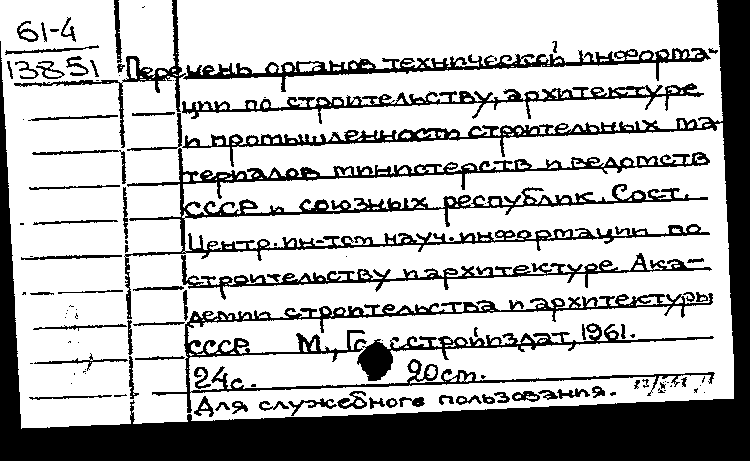 61-4
13851
Перечень органов технической информа-
ции по строительству, архитектуре
и промышленности строительных ма-
териалов министерств и ведомств
СССР и союзных республик. Сост.
Центр. ин-том науч. информации по
строительству и архитектуре Ака-
демии строительства и архитектуры
СССР. М., Госстройиздат, 1961.
24с. 20см.
Для служебного пользования.